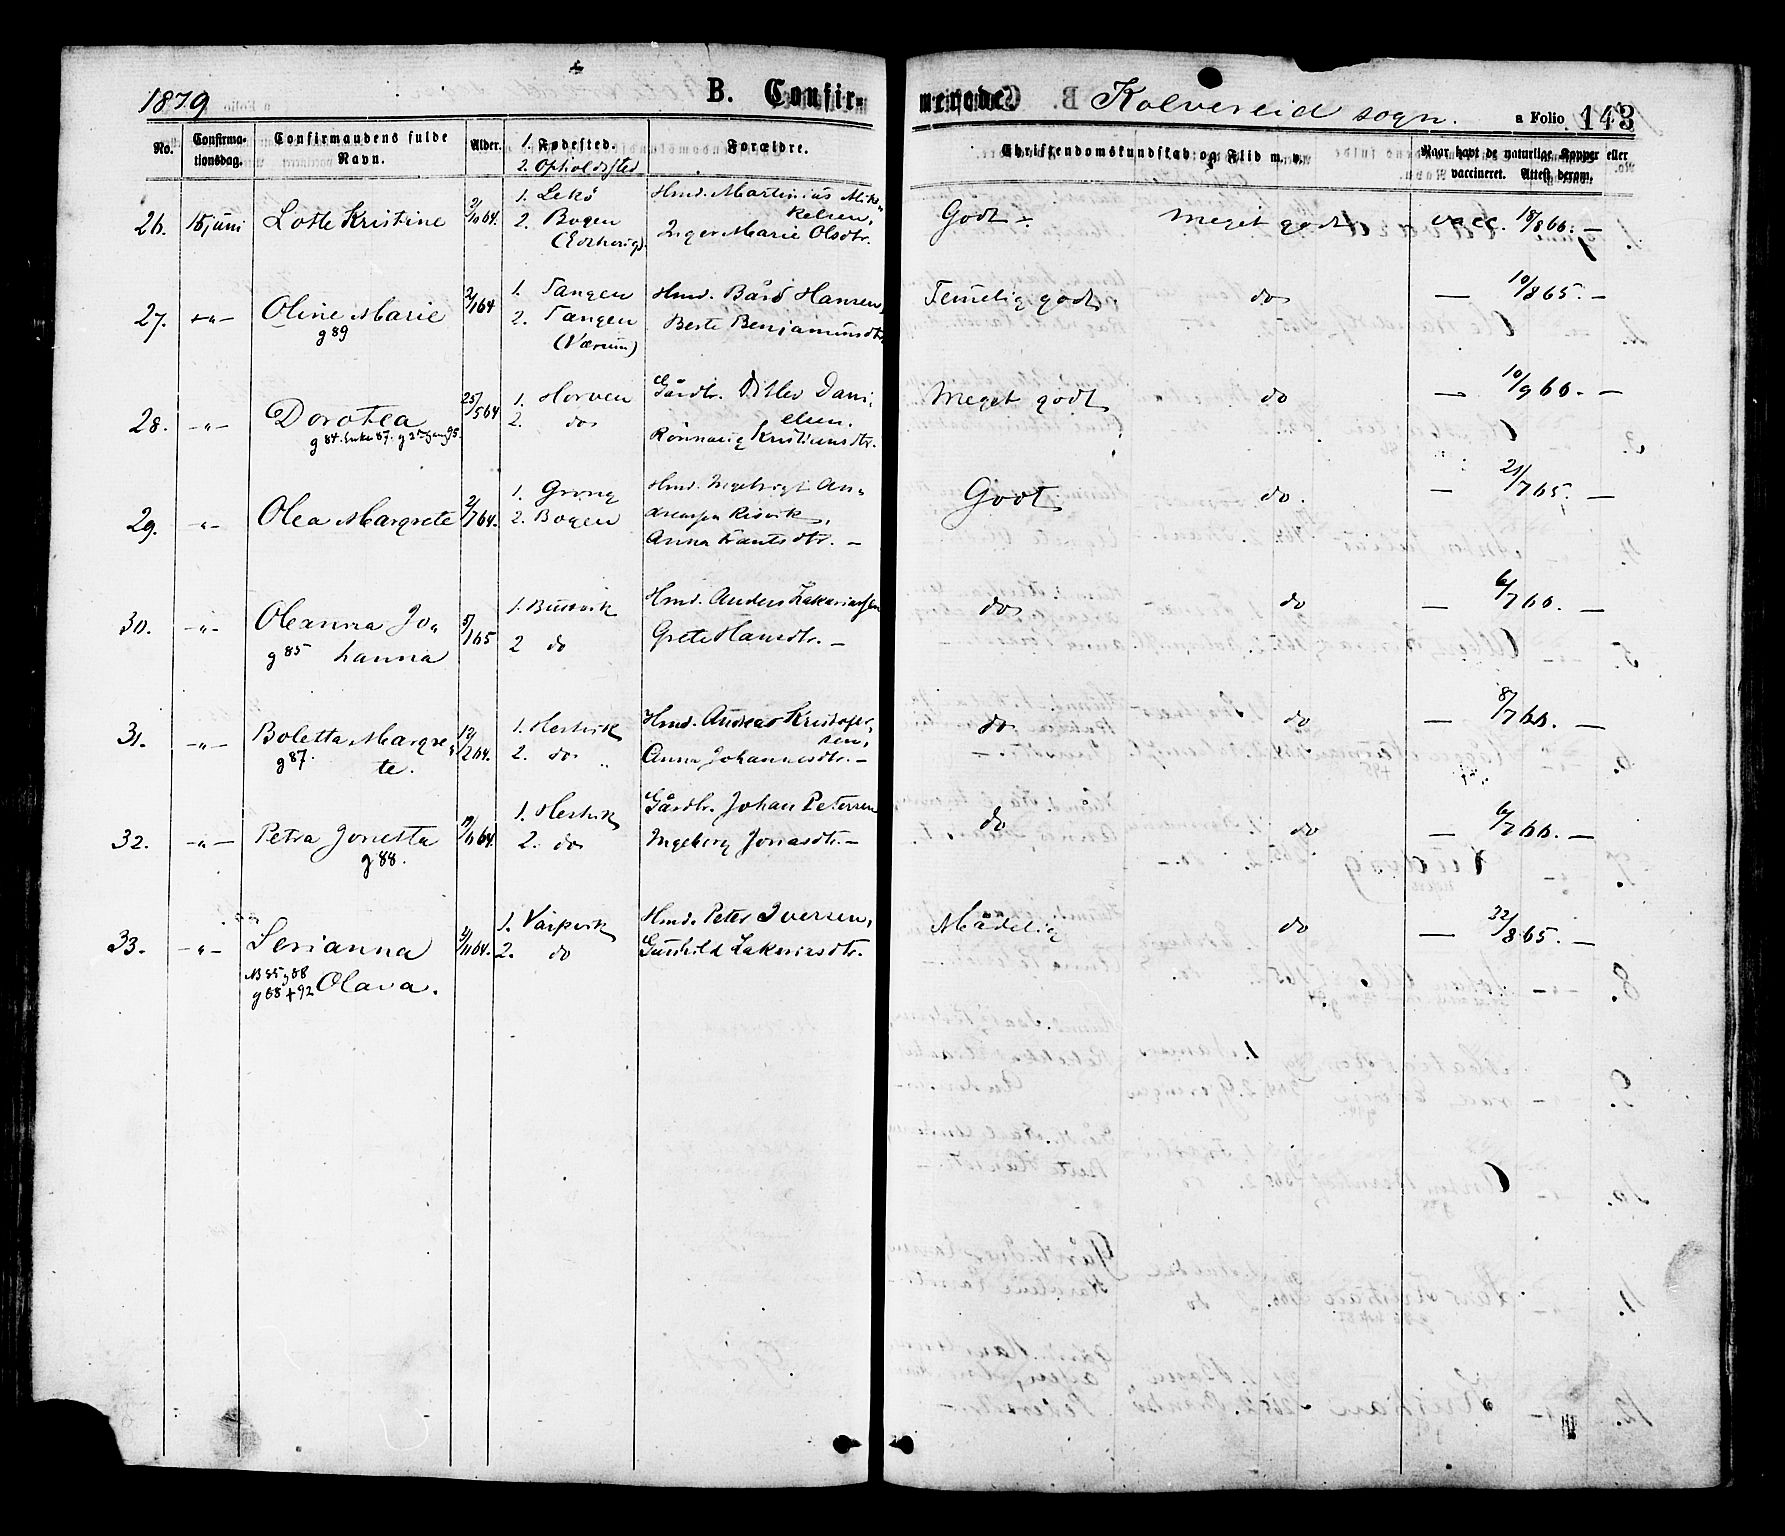 1879
B. Confir-
mende.
Kolvereid sogn.
a Folio 143
No.
Confirma-
tionsdag.
Confirmandens fulde
Navn.
Alder.
1. Fødested.
2. Opholdsted
Forældre.
Christendomskundskab og Flid m. v.
Naar havt de naturlige Kopper eller
vaccineret. Attest derom.
26. 15 juni Lotte Kristine
1. Lekø
2. Bogen
Hmd. Martinius Mik-
kelsen,
Inger Marie Olsdtr.
Godt - meget godt vacc. 18/8 66. -
27. -"- Oline Marie 2/1 64
g 89
1. Tangen
2. Tangen
(Værum)
Hmd. Bård Hansen,
Berte Benjaminsdtr.
Temelig godt do - 10/8 65. -
28. -"- Dorotea 25/5 64
g 84. Enke 87. g 2den gang 95.
1. Horven
2. do
Gårdbr. Ditlev Dani-
elsen.
Rønnaug Kristiansdtr.
Meget godt do - 10/9 66. -
29. -"- Olea Margrete 2/7 64.
1. Grong
2. Bogen
Hmd. Ingebrigt An-
dreassen Risvik,
Anna Trantsdtr. -
Godt do. - 21/7 65. -
30. -"- Oleanna Jo-
g 85 hanna
5/1 65
1. Busvik
2 do
Hmd. Anders Zakariassen
Grete Hansdtr. -
do - do - 6/7 66. -
31. -"- Boletta Margre-
g 87. te.
12/2 64.
1. Hestvik
2. do
Hmd. Andreas Kristofer-
sen,
Anna Johannesdtr. -
do do - 8/7 66. -
32. -"- Petra Jonetta
g 88.
1. Hestvik
2. do
Gårdbr. Johan Petersen
Ingeborg Jonasdtr. -
do do - 6/7 66. -
33. -"- Serianna
g 88 + 92 Olava.
2/11 64.
1. Varpvik
2. do
Hmd. Peter Iversen,
Gunhild Zakariasdtr.
Mådelig do - 32/8 65. -